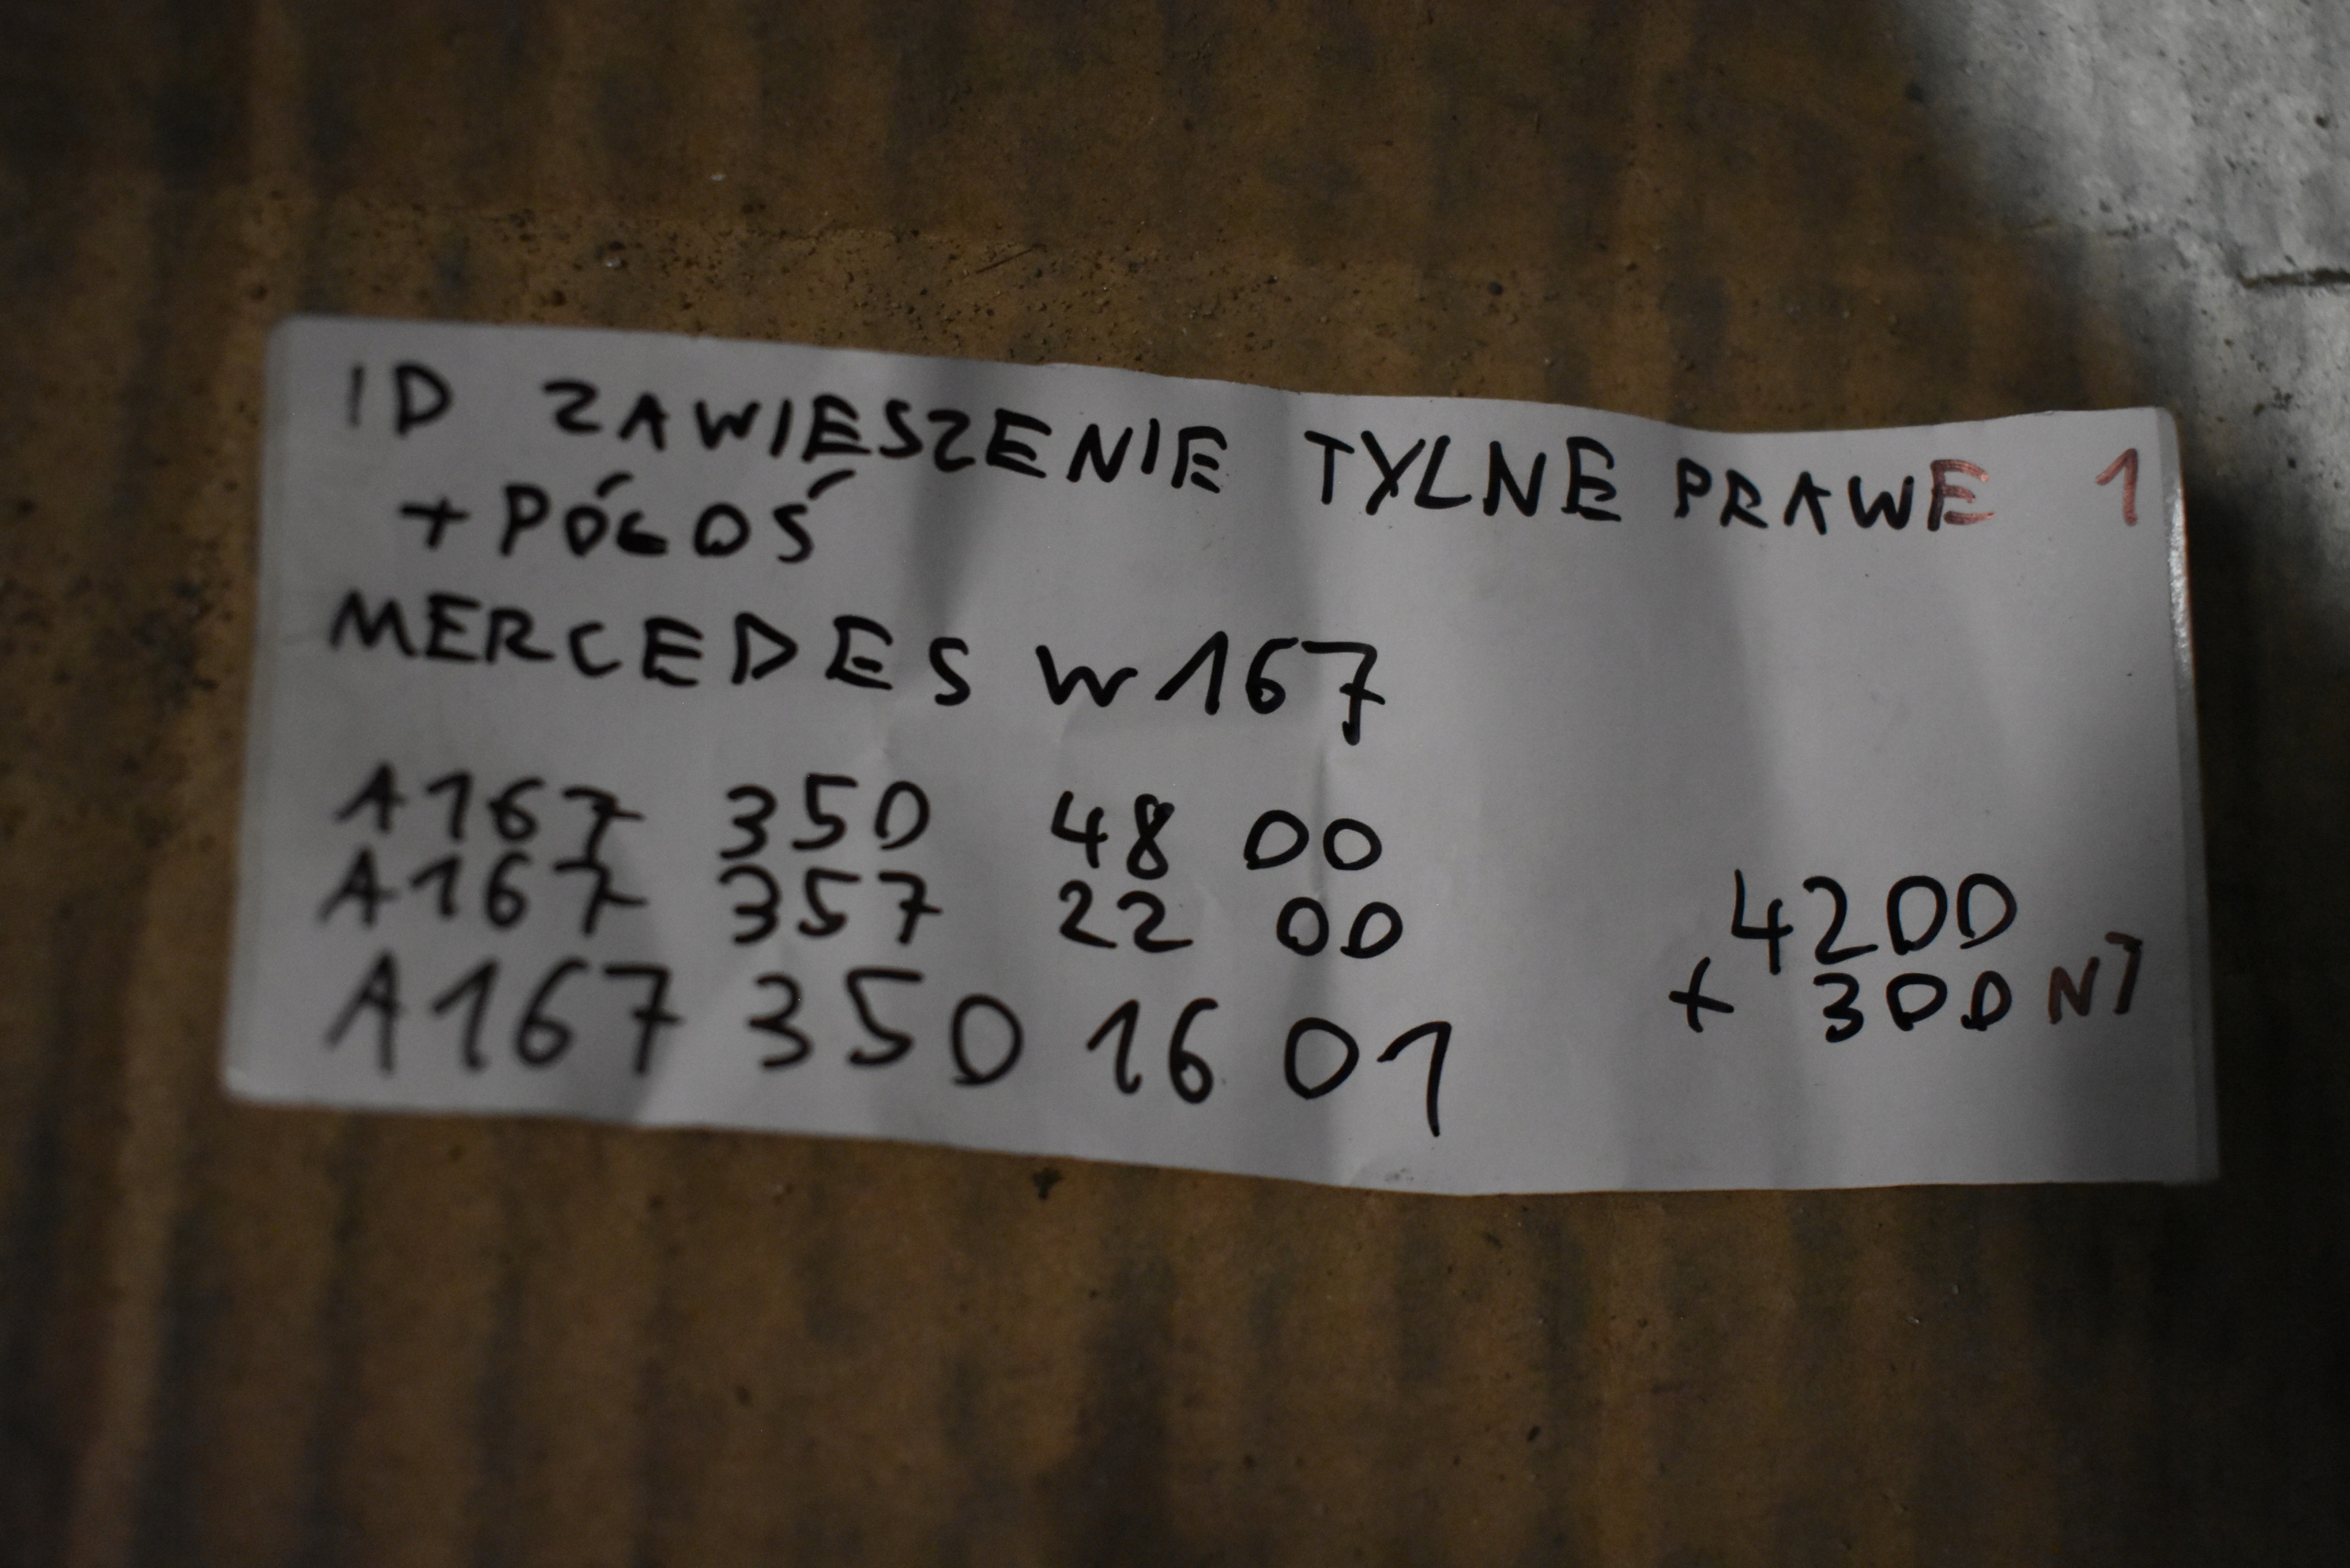 ID ZAWIESZENIE TYLNE PRAWE 1
+ PÓŁOŚ
MERCEDES W167
A167 350 48 00
A167 357 22 00
A167 350 16 01
4200
+ 300